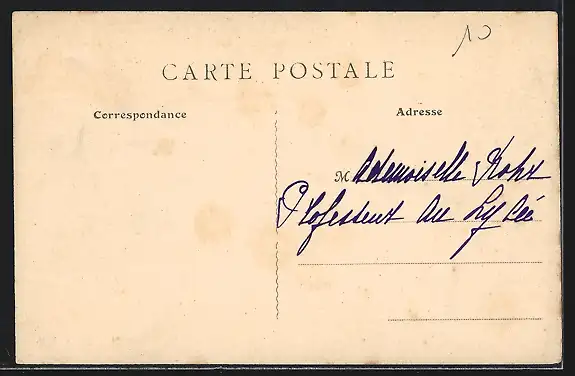 10
CARTE POSTALE
Correspondance
Adresse
Mademoiselle Rohr
Professeur Au Lycée